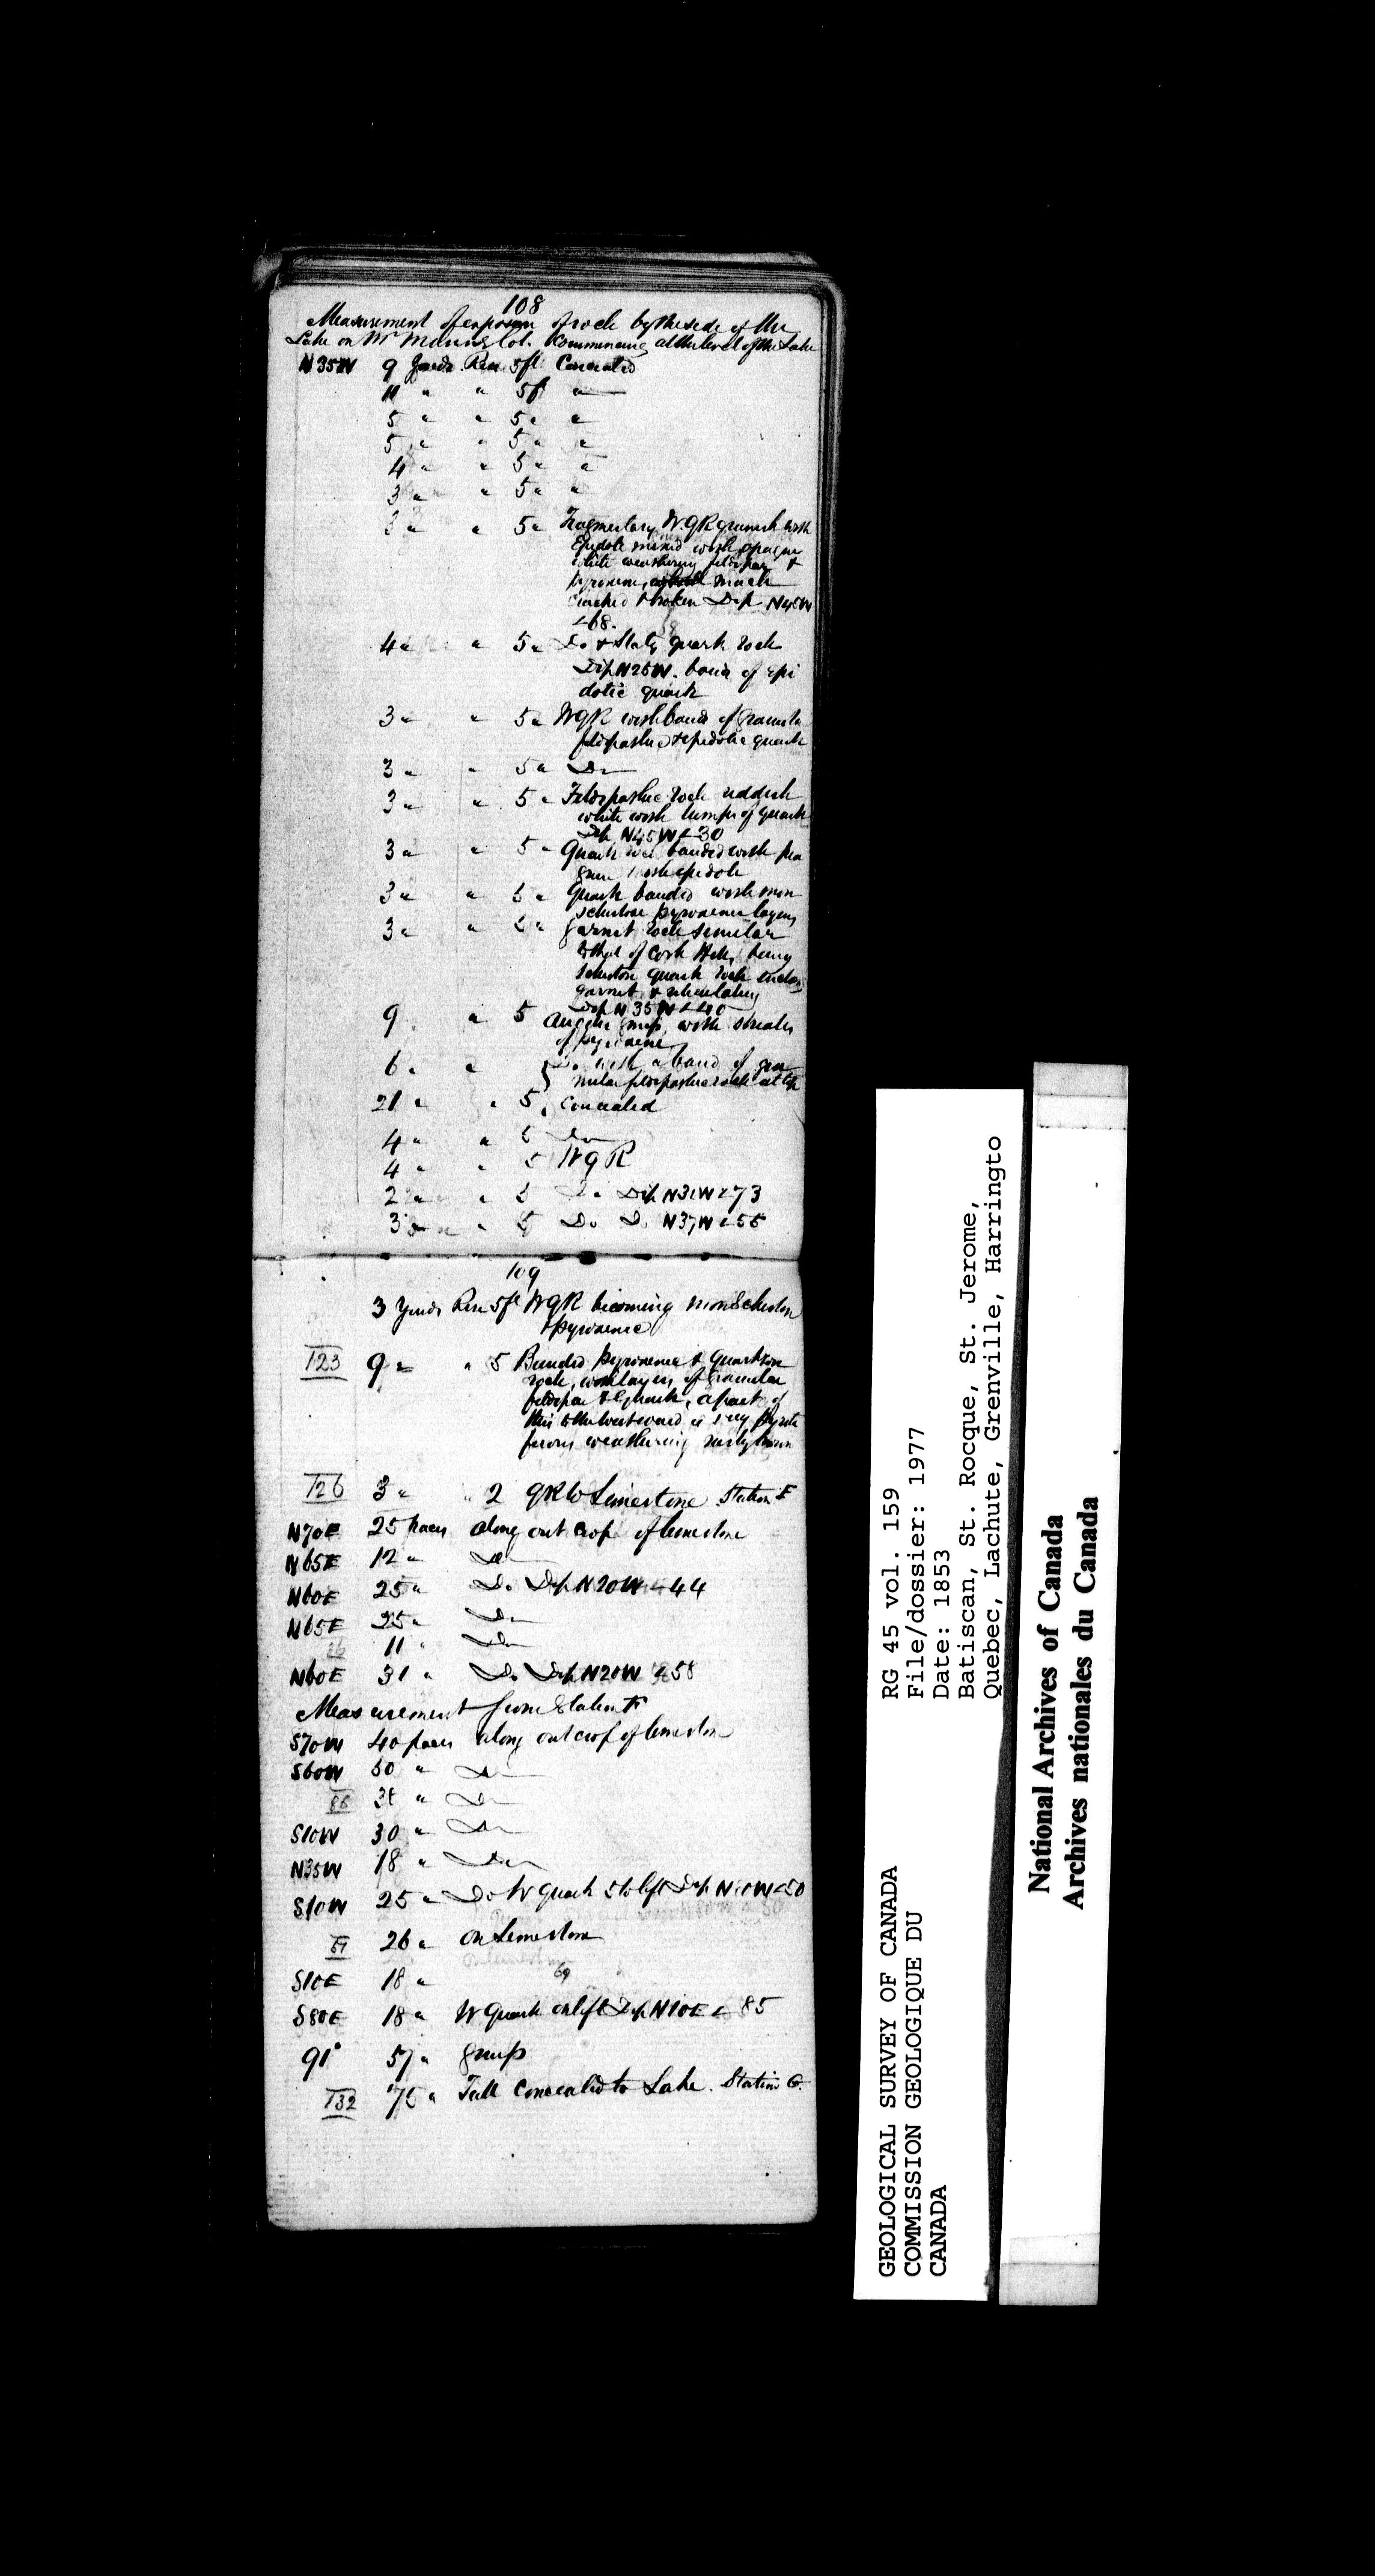 108
Measurement of exposure of rock by the side of the
Lake on Mr Manns lot. Commencing at the level of the Lake
N35W 9 yards Rise 5ft Concealed
11 " " 5ft "
5 " " 5 " "
5 " " 5 " "
4 " " 5 " "
3 " " 5 " "
3 " " 5 " Fragmentary W.Q.R greenish with
Epidote mixed with opaque
white weathering feldspar &
pyroxene, much
cracked & broken Dip N45W
<68.
4 " " 5 " Do & slaty quartz rock
Dip N25W. band of epi
dotic quartz
3 " " 5 " WQR with bands of granular
feldspathic & epidotic quartz
3 " " 5 " Do
3 " " 5 " Feldspathic rock reddish
white with lumps of quartz
Dip N45W < 30
3 " " 5 " Quartz rock banded with pea
green epidote
3 " " 5 " Quartz banded with more
schistose pyroxenic layers
3 " " 5 " garnet rock similar
to that of being
schistose quartz rock
garnet & reticulating
Dip N35W < 40
9 " 5 gneiss, with streaks
of pyroxene
6 " " Do with a band of gra
nular feldspathic rock at top
21 " " 5 " Concealed
4 " " 5 Do
4 " " 5 WQR
2 " " 5 Do Dip N31W < 73
3 " " 5 Do Do N37W < 55
109
3 yards Rise 5ft WQR becoming more schistose
& pyroxenic
123 9 " " 5 Banded pyroxenic & quartzose
rock, with layers of granular
feldspar & quartz, a part of
this to the westward is very pyrite
ferous weathering rusty brown
126 3 " " 2 QR to Limestone Station F
N70E 25 paces along out crop of limestone
N65E 12 " Do
N60E 25 " Do Dip N20W < 44
N65E 25 " Do
11 " Do
N60E 31 " Do Dip N20W < 58
Measurement from Station F
S70W 40 paces along outcrop of limestone
S60W 50 " Do
88 38 " Do
S10W 30 " Do
N35W 18 " Do
S10W 25 " Do W Quartz 5 to left Dip N10W < 50
69 26 " on Limestone
S10E 18 " 69
S80E 18 " W Quartz on left Dip N10E < 85
91° 57 " gneiss
132 75 " Fall concealed to Lake. Station G.
GEOLOGICAL SURVEY OF CANADA
COMMISSION GEOLOGIQUE DU
CANADA
RG 45 vol. 159
File/dossier: 1977
Date: 1853
Batiscan, St. Rocque, St. Jerome,
Quebec, Lachute, Grenville, Harringto
National Archives of Canada
Archives nationales du Canada